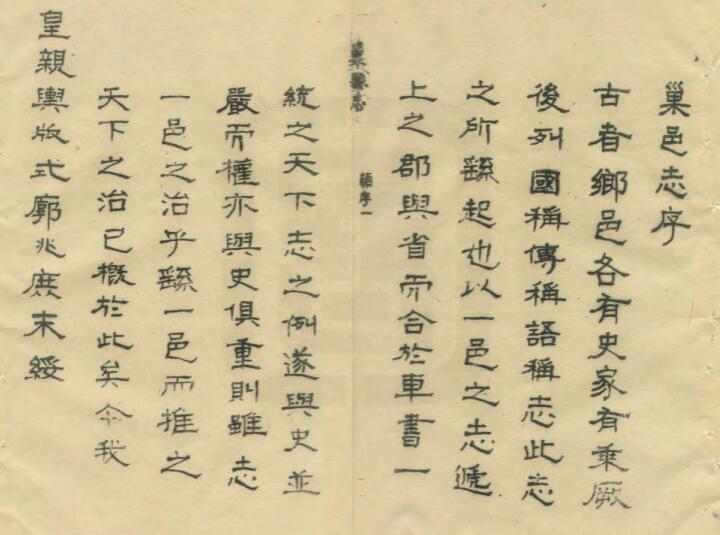 巢邑志序
古者鄉邑各有史家有乘厥
後列國稱傳稱語稱志此志
之所繇起也以一邑之志遞
上之郡與省而合於車書一
巢縣志
序一
統之天下志之例遂與史並
嚴而權亦與史俱重則雖志
一邑之治乎繇一邑而推之
天下之治已概於此矣今我
皇親輿版式廓兆庶末綏